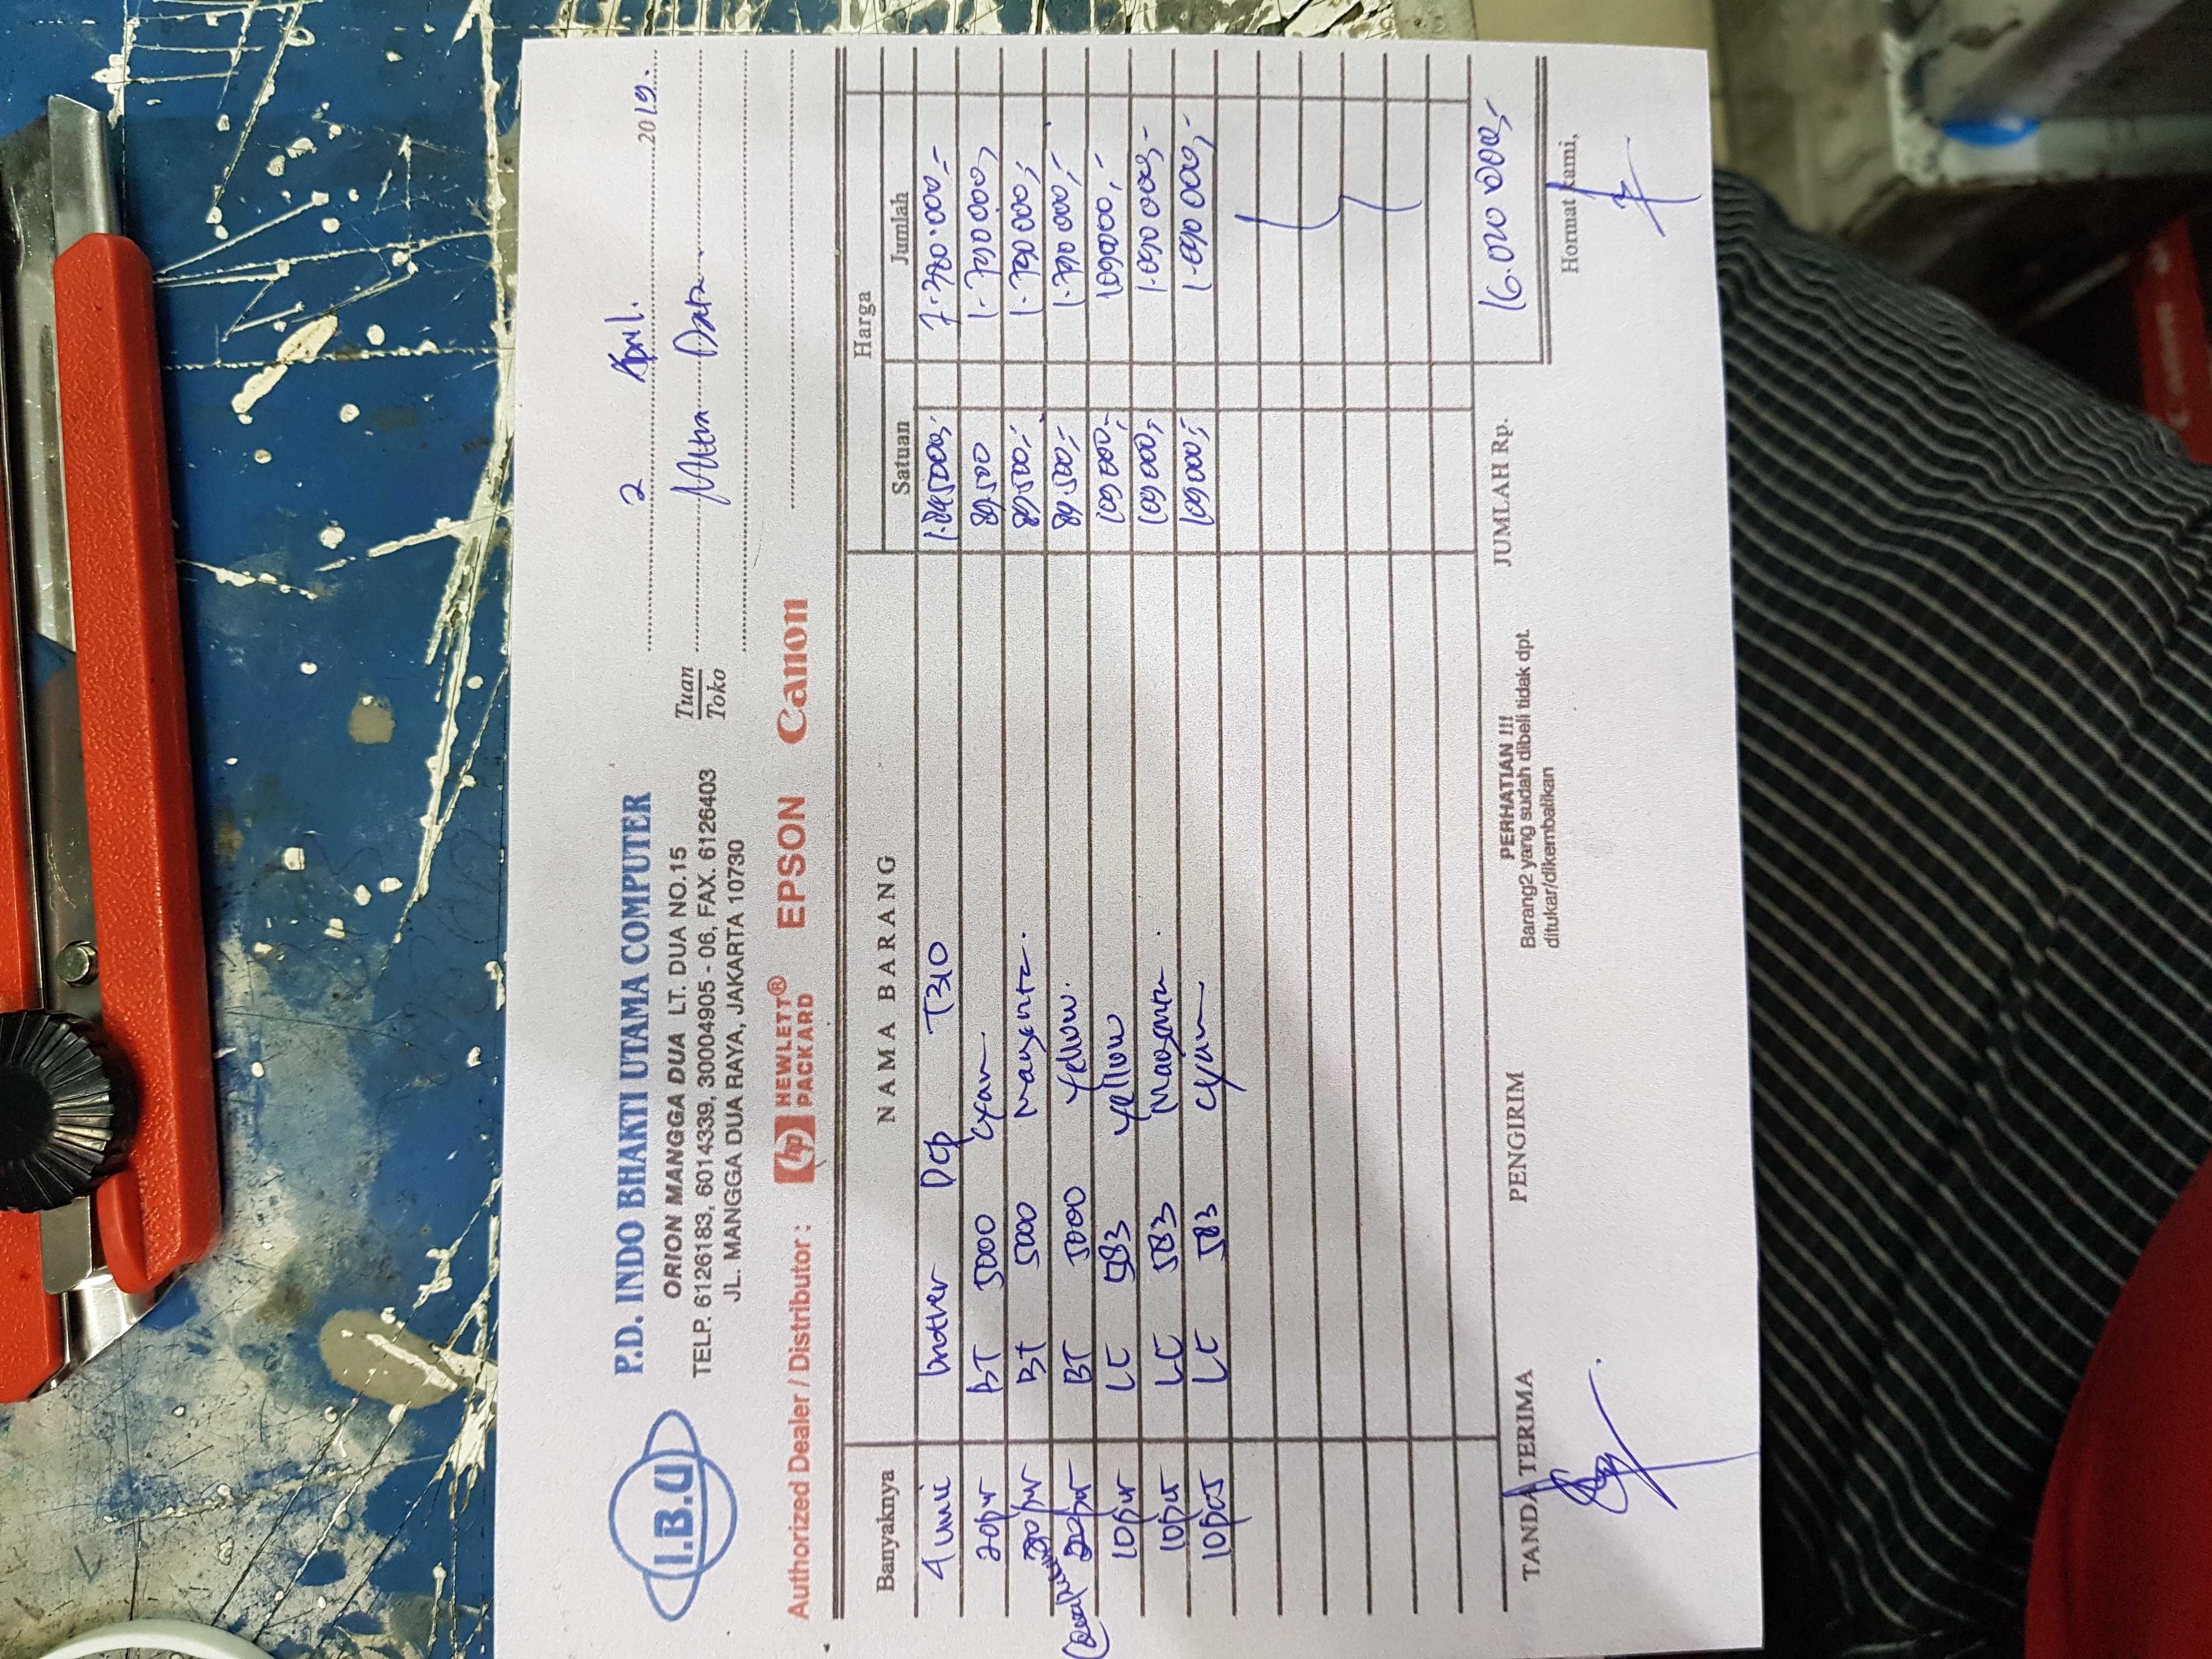 I.B.U
P.D. INDO BHAKTI UTAMA COMPUTER
ORION MANGGA DUA LT. DUA NO.15
TELP. 6126183, 6014339, 30004905 - 06, FAX. 6126403
JL. MANGGA DUA RAYA, JAKARTA 10730
2 April. 2019.
Tuan
Toko
Data
Authorized Dealer / Distributor : hp HEWLETT® PACKARD EPSON Canon
Banyaknya NAMA BARANG Harga
Satuan Jumlah
4 unit brother Dcp T310
20 BT 5000 Cyan 89.500 1.790.000,
20 BT 5000 Magenta. 89.500,- 1.790.000,-
20 BT 5000 Yellow. 89.500,- 1.790.000,-
10 LC 583 Yellow 109.000,- 1090000,-
10 LC 583 Magenta. 109.000,- 1.090.000,-
10pcs LC 583 Cyan 109.000,- 1.090.000,-
JUMLAH Rp. 16.020.000,-
TANDA TERIMA
PENGIRIM
PERHATIAN !!!
Barang2 yang sudah dibeli tidak dpt.
ditukar/dikembalikan
Hormat kami,